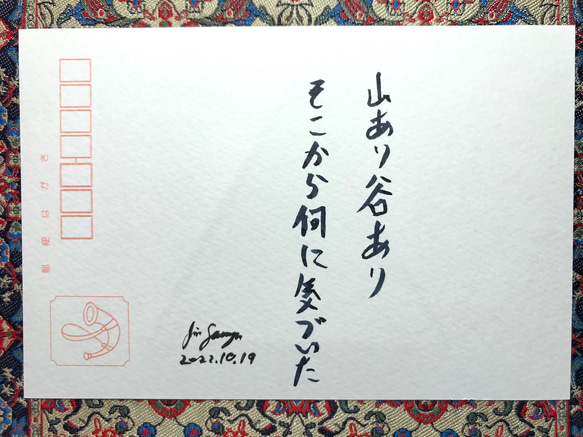 山あり谷あり
そこから何に気づいた
2022.10.19
郵便はがき